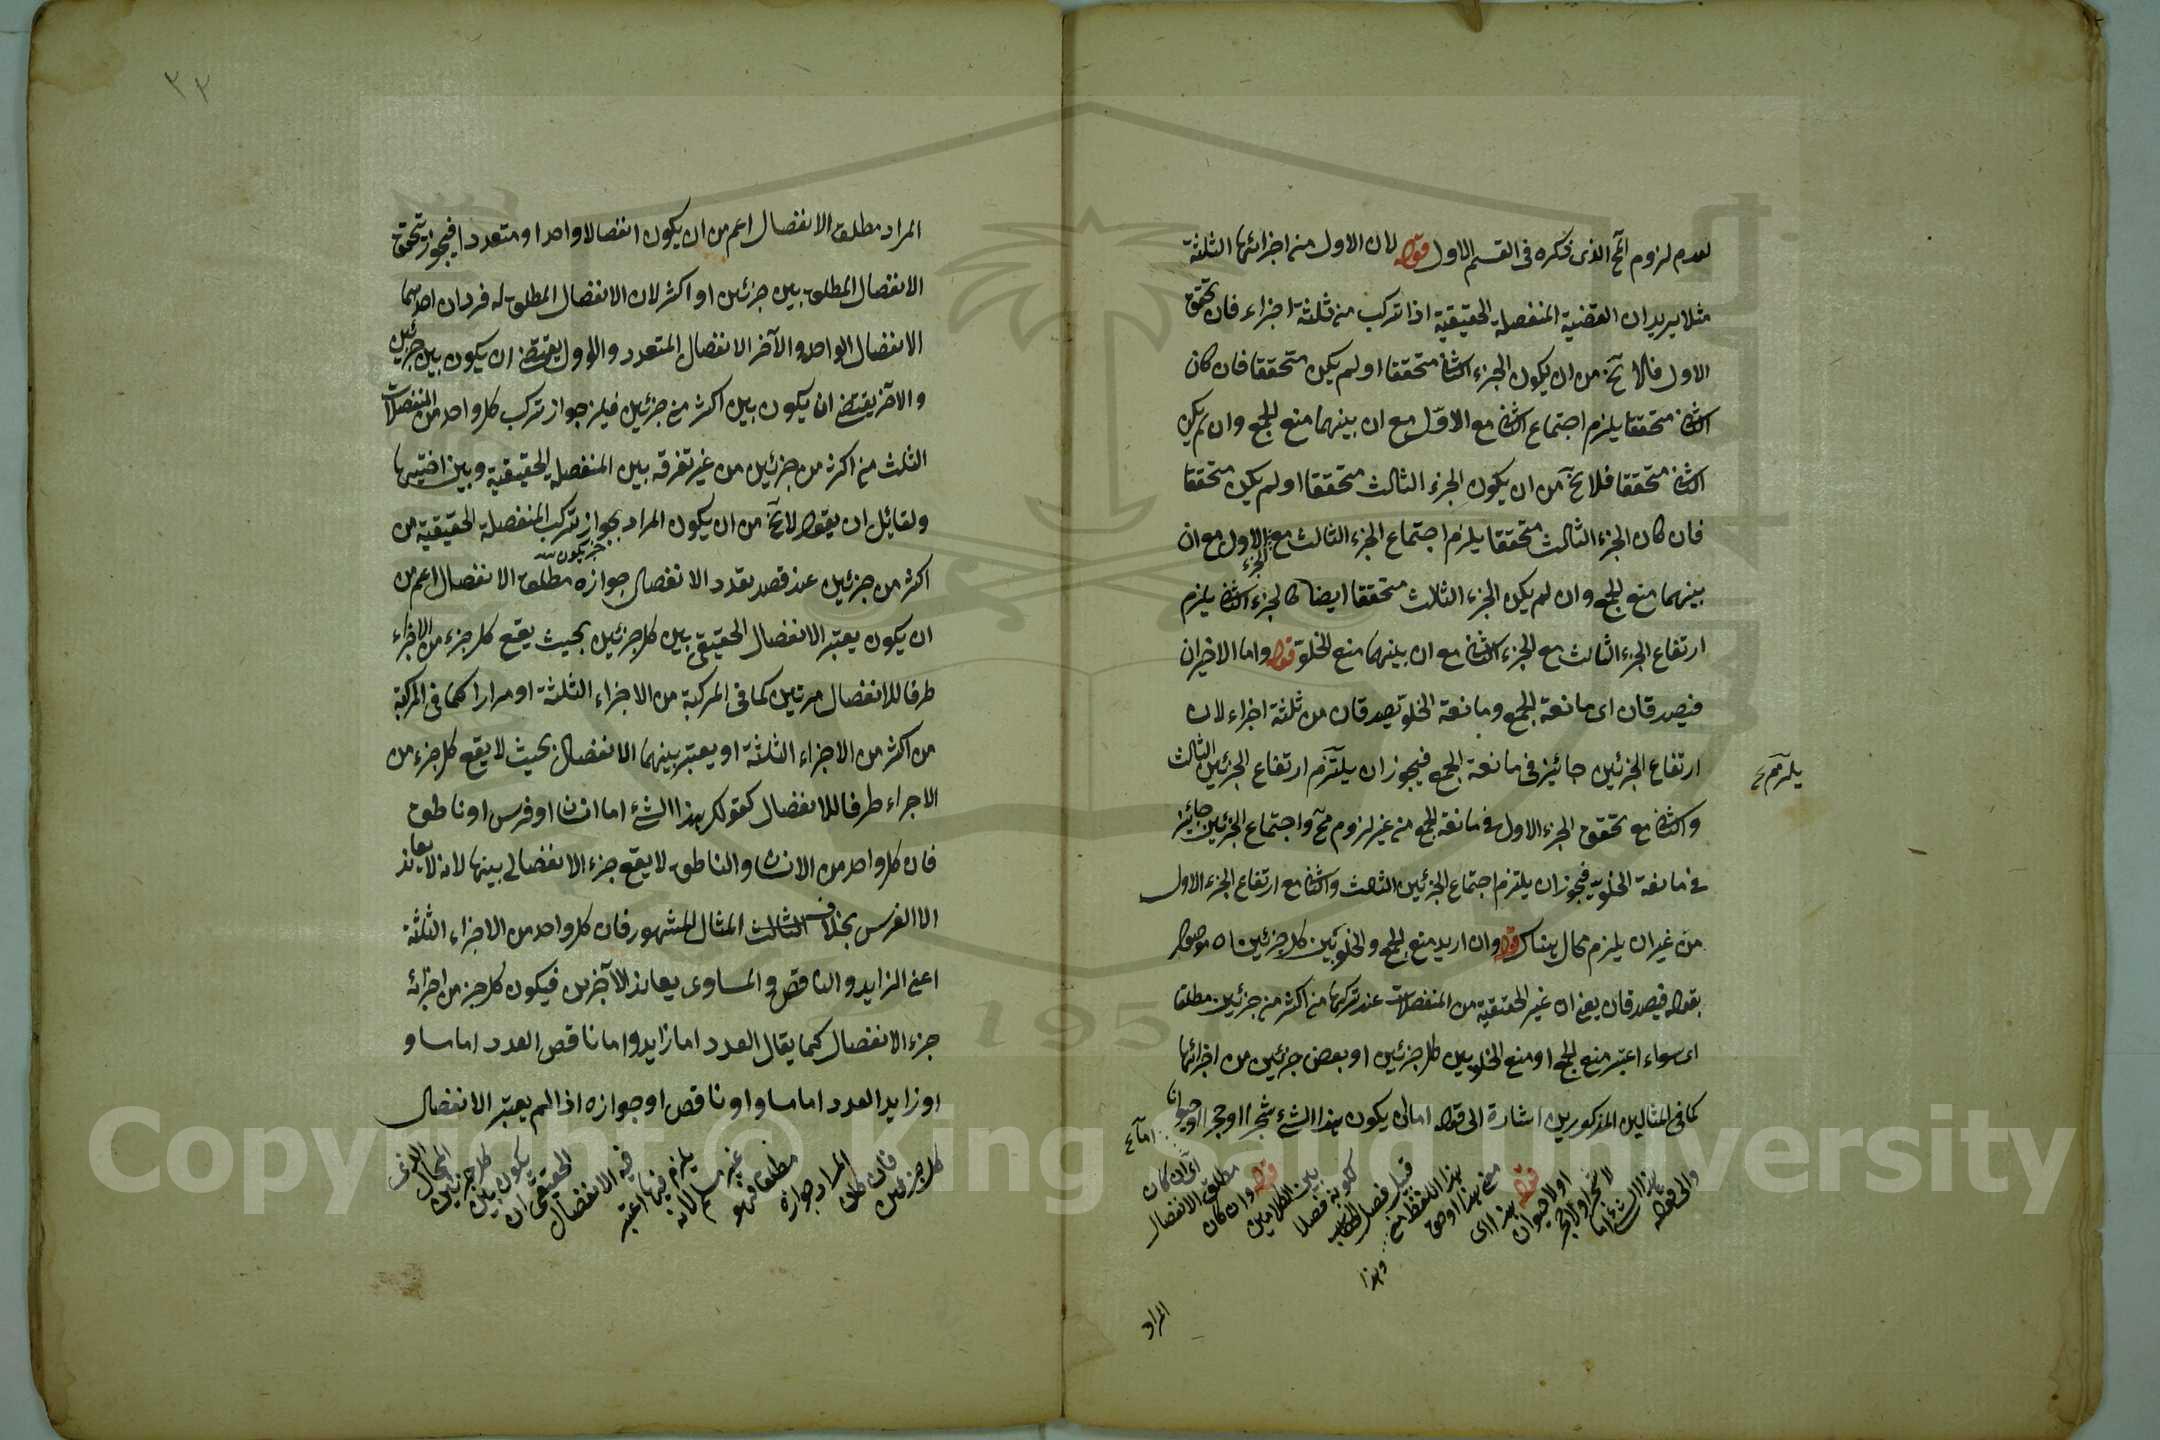 لعدم لزوم المح الذى ذكره فى القسم الاول قوله لان الاول من اجزائها الثلثة
مثلا يريد ان القضية المنفصلة الحقيقية اذا تركب من ثلثة اجزاء فان تحقق
الاول فلا يخ من ان يكون الجزء الثانى متحققا او لم يكن متحققا فان كان
الثانى متحققا يلزم اجتماع الثانى مع الاول مع ان بينهما منع الجمع وان لم يكن
الثانى متحققا فلا يخ من ان يكون الجزء الثالث متحققا او لم يكن متحققا
فان كان الجزء الثالث متحققا يلزم اجتماع الجزء الثالث مع الجزء الاول مع ان
بينهما منع الجمع وان لم يكن الجزء الثالث متحققا ايضا كالجزء الثانى يلزم
ارتفاع الجزء الثالث مع الجزء الثانى مع ان بينهما منع الخلو قوله واما الاخيران
فيصدقان اى مانعة الجمع ومانعة الخلو تصدقان من ثلثة اجزاء لان
ارتفاع الجزئين جائز فى مانعة الجمع فيجوز ان يلتزم ارتفاع الجزئين الثالث
يلزم
والثانى مع تحقق الجزء الاول فى مانعة الجمع من غير لزوم مح واجتماع الجزئين جائز
فى مانعة الخلو فيجوز ان يلتزم اجتماع الجزئين الثالث والثانى مع ارتفاع الجزء الاول
من غير ان يلزم محال هناك قوله وان اريد منع الجمع والخلو بين كل جزئين
بقوله فيصدقان يعنى ان غير الحقيقية من المنفصلات عند تركبها من اكثر من جزئين مطلقا
اى سواء اعتبر منع الجمع او منع الخلو بين كل جزئين او بعض جزئين من اجزائها
كما فى المثالين المذكورين اشارة الى قوله اما ان يكون هذا الشئ شجرا او حجرا او حيوانا
والى قوله هذا الشئ اما لا شجر او لا حجر او لا حيوان قوله هذا اى
قوله وان كان مطلق الانفصال اى ان كان
وهذا
المراد
٣٣
المراد مطلق الانفصال اعم من ان يكون انفصالا واحدا او متعددا فيجوز تحقق
الانفصال المطلق بين جزئين او اكثر لان الانفصال المطلق له فردان احدهما
الانفصال الواحد والآخر الانفصال المتعدد والاول يقتضى ان يكون بين جزئين
والآخر يقتضى ان يكون بين اكثر من جزئين فيلزم جواز تركب كل واحد من المنفصلات
الثلث من اكثر من جزئين من غير تفرقه بين المنفصلة الحقيقية وبين اختيها
ولقائل ان يقول لا يخ من ان يكون المراد بجواز تركب المنفصلة الحقيقية من
اكثر من جزئين عند قصد تعدد الانفصال جوازه مطلق الانفصال اعم من
ان يكون يعتبر الانفصال الحقيقى بين كل جزئين بحيث يقع كل جزء من الاجزاء
طرفا للانفصال مرتين كما فى المركبة من الاجزاء الثلثة او مرارا كما فى المركبة
من اكثر من الاجزاء الثلثة او يعتبر بينهما الانفصال بحيث لا يقع كل جزء من
الاجزاء طرفا للانفصال كقولك هذا الشئ اما انسان او فرس او ناطق
فان كل واحد من الانسان والناطق لا يقع جزء الانفصال بينها لانه لا يعاند
الا الفرس بخلاف الثالث المثال المشهور فان كل واحد من الاجزاء الثلثة
اعنى الزايد والناقص والمساوى يعاند الآخرين فيكون كل جزء من اجزائه
جزء الانفصال كما يقال العدد اما زايد واما ناقص العدد اما مساو
او زايد العدد اما مساو او ناقص او جوازه اذا لم يعتبر الانفصال
كل جزئين فان كان المراد جوازه مطلقا فهو غير مسلم لانه
يلزم فيما اعتبر فيه الانفصال الحقيقى ان يكون بين كل جزئين المحال الذى